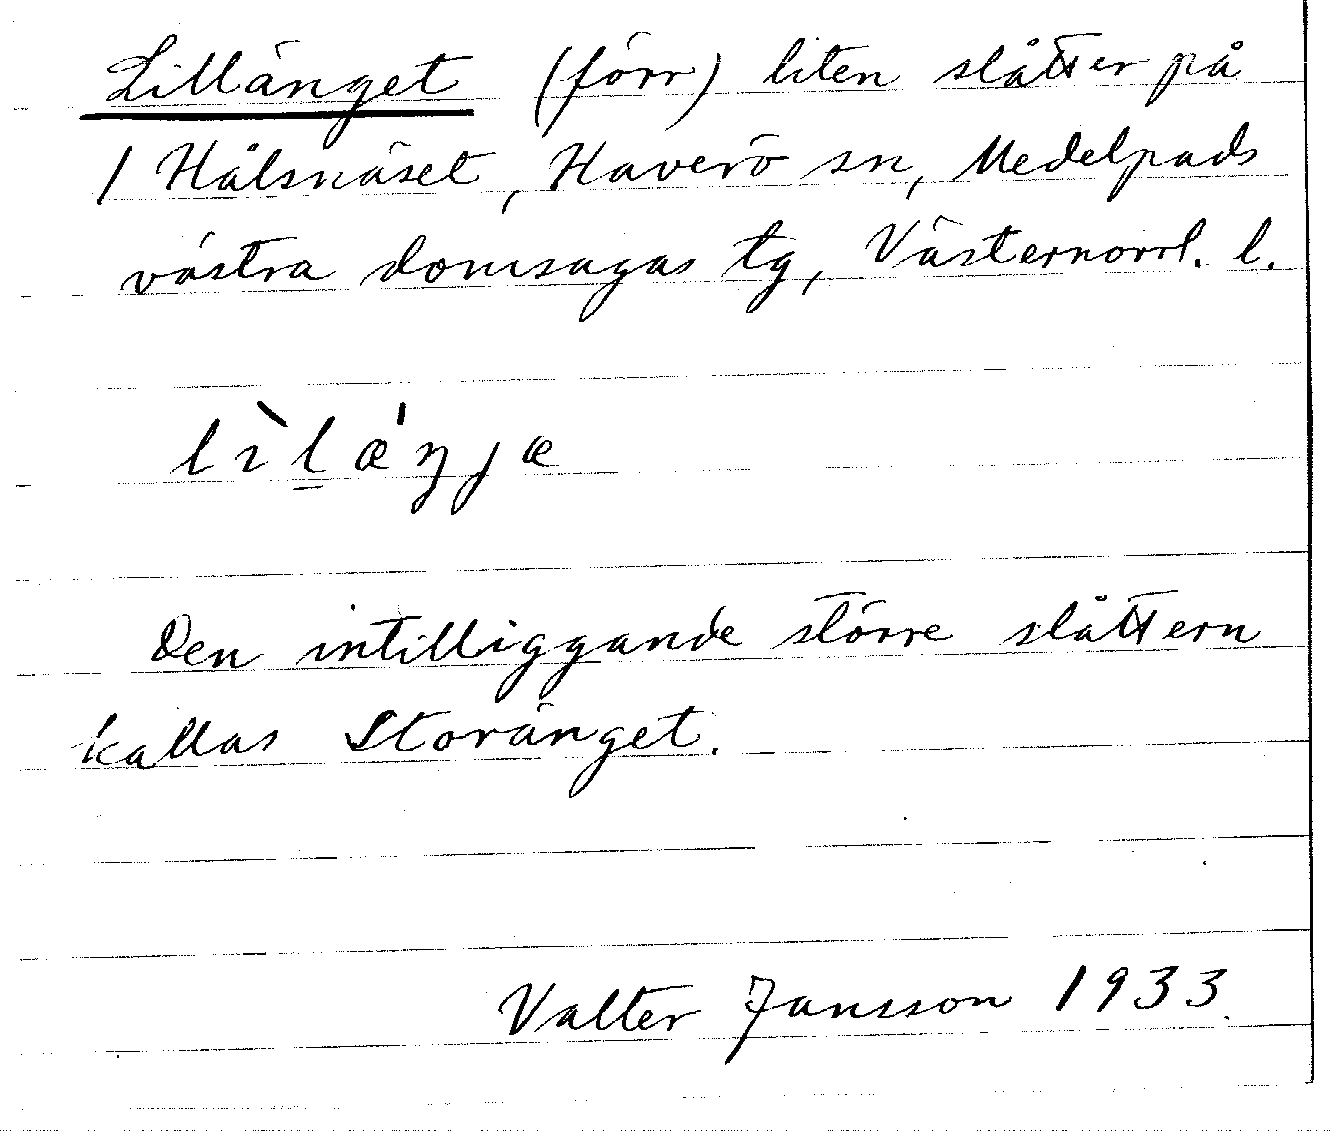 Lillänget (förr) liten slåtter på
1 Hålsnäset, Haverö sn, Medelpads
västra domsagas tg, Västernorrl. l.
lìlæ̍ŋjæ
Den intilliggande större slåttern
kallas Storänget.
Valter Jansson 1933.